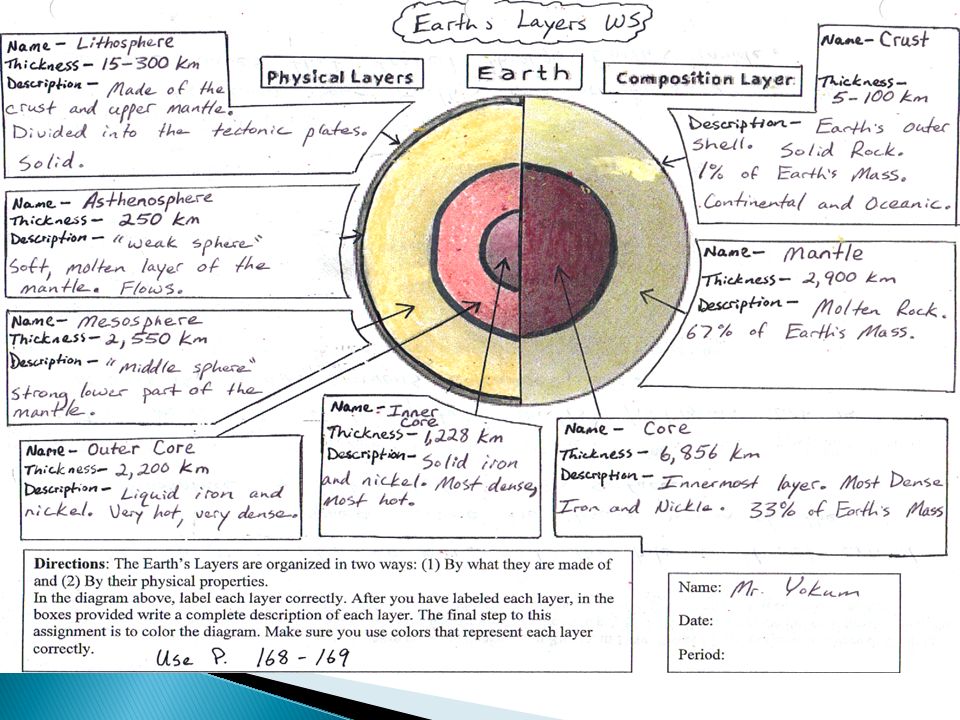 Earth's Layers WS
Physical Layers
Earth
Composition Layer
Name- Lithosphere
Thickness- 15-300 km
Description- Made of the
crust and upper mantle.
Divided into the tectonic plates.
Solid.
Name- Asthenosphere
Thickness- 250 km
Description- "weak sphere"
Soft, molten layer of the
mantle. Flows.
Name- Mesosphere
Thickness- 2,550 km
Description- "middle sphere"
strong lower part of the
mantle.
Name- Outer Core
Thickness- 2,200 km
Description- Liquid iron and
nickel. Very hot, very dense.
Name- Inner
Core
Thickness- 1,228 km
Description- Solid iron
and nickel. Most dense,
most hot.
Name- Crust
Thickness-
5-100 km
Description- Earth's outer
shell. Solid Rock.
1% of Earth's Mass.
Continental and Oceanic.
Name- Mantle
Thickness- 2,900 km
Description- Molten Rock.
67% of Earth's Mass.
Name- Core
Thickness- 6,856 km
Description- Innermost layer. Most Dense
Iron and Nickle. 33% of Earth's Mass
Directions: The Earth's Layers are organized in two ways: (1) By what they are made of
and (2) By their physical properties.
In the diagram above, label each layer correctly. After you have labeled each layer, in the
boxes provided write a complete description of each layer. The final step to this
assignment is to color the diagram. Make sure you use colors that represent each layer
correctly.
Use P. 168-169
Name: Mr. Yokum
Date:
Period: